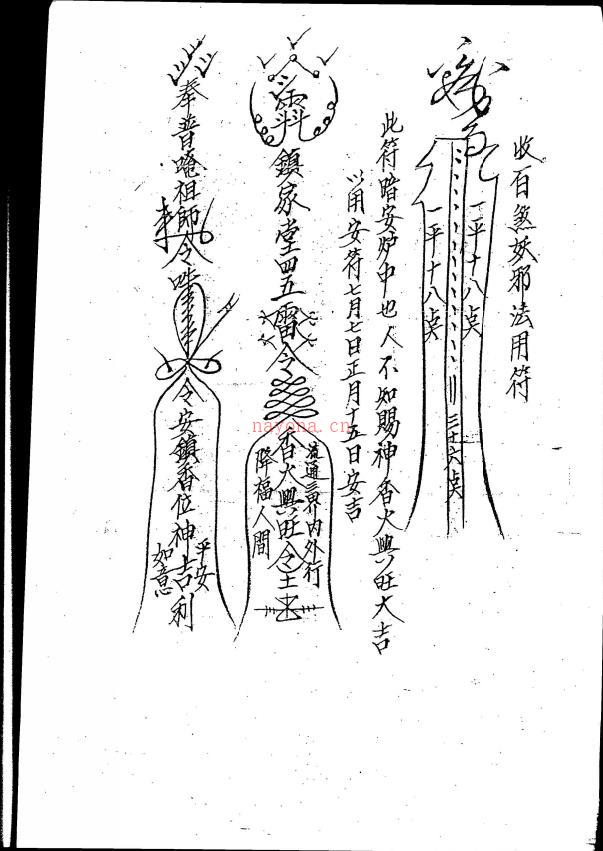 收百煞妖邪法用符
一平十八点
三十六点
一平十八点
此符暗安炉中也人不知賜神香火興旺大吉
以用安符七月七日正月十五日安吉
鎮家堂四五雷令
流通三界內外行
香火興旺令
降福人間
奉普唵祖師令
令安鎮香位神吉利
平安
如意
nayona.cn